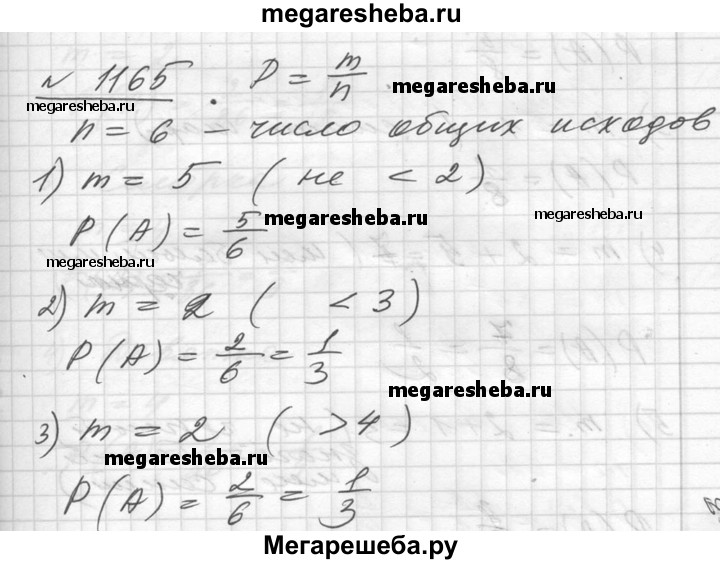 megaresheba.ru
№ 1165. P = m/n
megaresheba.ru
megaresheba.ru
n = 6 – число общих исходов
1) m = 5 ( не < 2 )
P(A) = 5/6
megaresheba.ru
megaresheba.ru
megaresheba.ru
2) m = 2 ( < 3 )
P(A) = 2/6 = 1/3
megaresheba.ru
3) m = 2 ( > 4 )
megaresheba.ru
P(A) = 2/6 = 1/3
Мегарешеба.ру